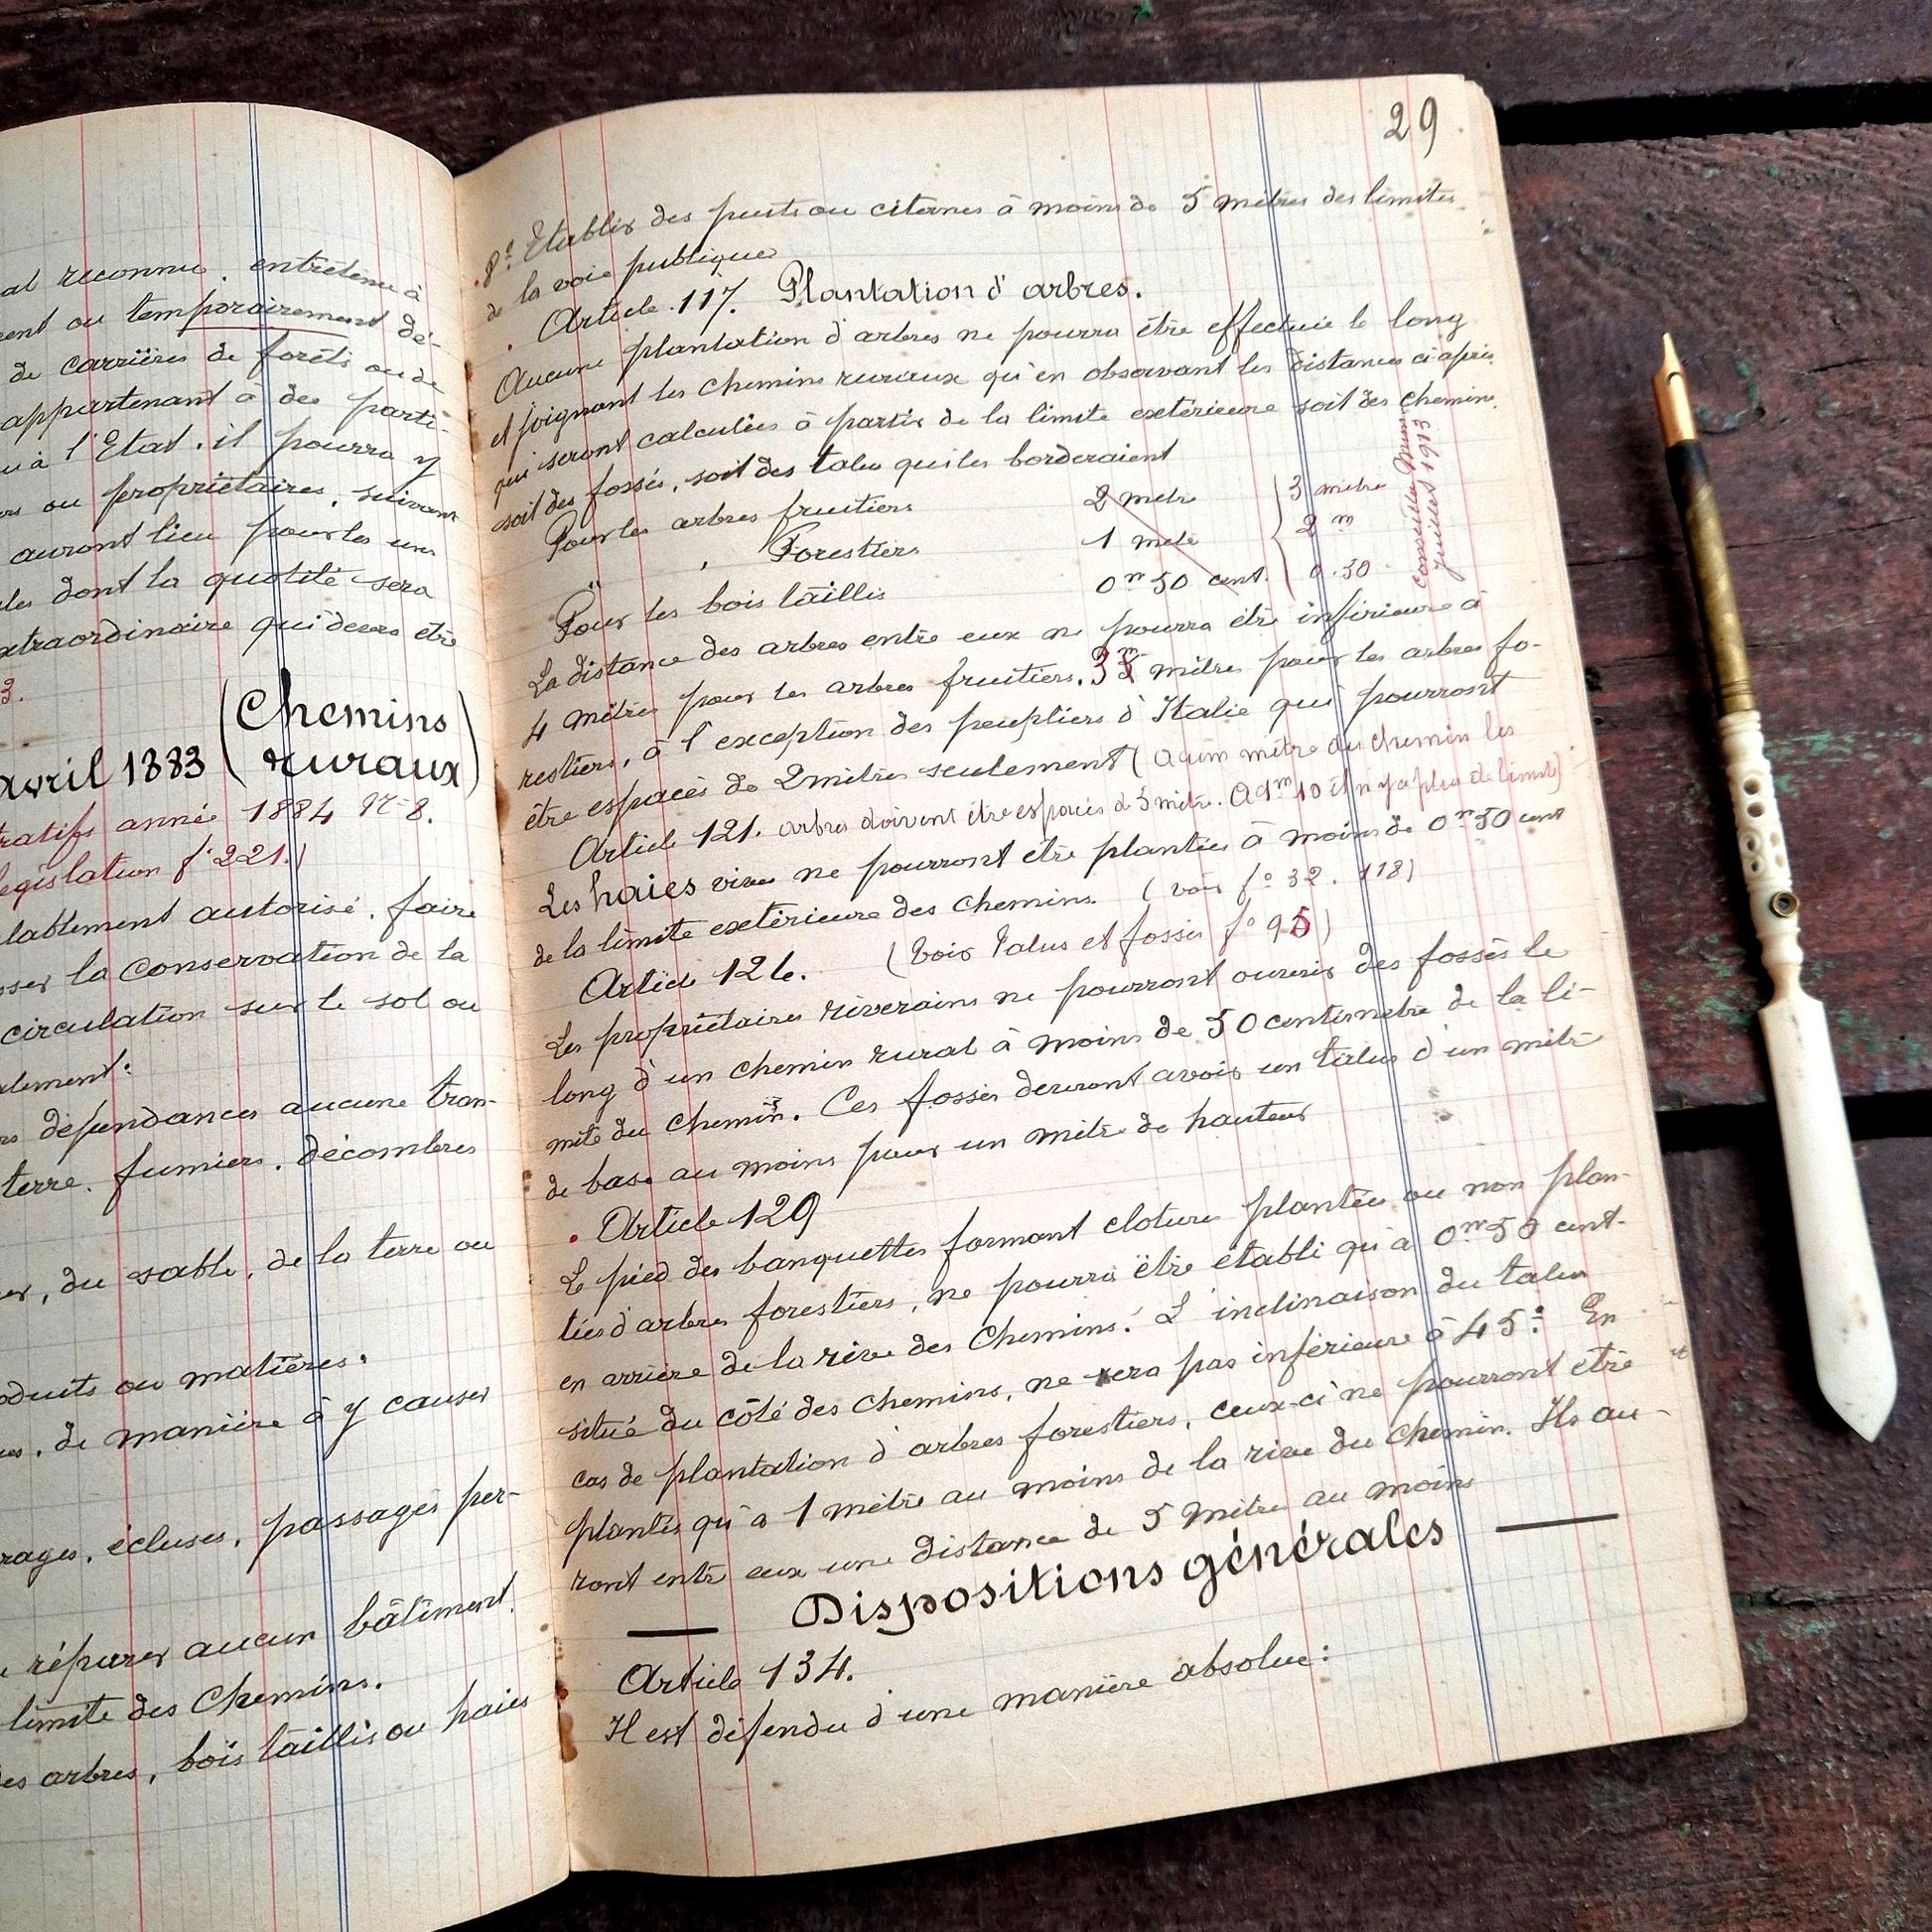 al reconnu, entretenu à
ent ou temporairement dé-
de carrières de forêts ou de
appartenant à des parti-
à l'Etat, il pourra y
ou propriétaires, suivant
auront lieu pour les uns
dont la quotité sera
extraordinaire qui devra être
3.
avril 1883 (Chemins
ruraux)
ratifs année 1884 N° 8.
législation f° 221.)
lablement autorisé, faire
ser la conservation de la
circulation sur le sol ou
alement:
dépendances aucune tran-
terre, fumiers, décombres
, du sable, de la terre ou
oduits ou matières.
, de manière à y causer
rages, écluses, passages per-
réparer aucun bâtiment
limite des Chemins.
es arbres, bois taillis ou haies
29
8° Etablir des puits ou citernes à moins de 5 mètres des limites
de la voie publique
Article 117. Plantation d'arbres.
Aucune plantation d'arbres ne pourra être effectuée le long
et joignant les chemins ruraux qu'en observant les distances ci après
qui seront calculées à partir de la limite extérieure soit des chemins,
soit des fossés, soit des talus qui les borderaient
Pour les arbres fruitiers 2 mètre 3 mètre
" , Forestiers 1 mètre 2 m
Pour les bois taillis 0m 50 cent. 0.50
Conseiller Muni
Juillet 1913
La distance des arbres entre eux ne pourra être inférieure à
4 mètres pour les arbres fruitiers, 3m mètres pour les arbres fo-
restiers, à l'exception des peupliers d'Italie qui pourront
être espacés de 2 mètres seulement (à un mètre du chemin les
Article 121. arbres doivent être espacés de 5 mètre. à 1m 10 il n'y a plus de limite)
Les haies vives ne pourront être plantées à moins de 0m 50 cent
de la limite extérieure des chemins. (voir f° 32. 118)
Article 126. (Voir Talus et fossés f° 95)
Les propriétaires riverains ne pourront ouvrir des fossés le
long d'un chemin rural à moins de 50 centimètre de la li-
mite du chemin. Ces fossés devront avoir un talus d'un mètre
de base au moins pour un mètre de hauteur
Article 129
Le pied des banquettes formant cloture plantées ou non plan-
tées d'arbres forestiers, ne pourra être établi qu'à 0m 50 cent.
en arrière de la rive des Chemins. L'inclinaison du talus
situé du côté des chemins, ne sera pas inférieure à 45°. En
cas de plantation d'arbres forestiers, ceux-ci ne pourront être
plantés qu'à 1 mètre au moins de la rive du chemin. Ils au-
ront entre eux une distance de 5 Mètre au moins
Dispositions générales
Article 134.
Il est défendu d'une manière absolue: